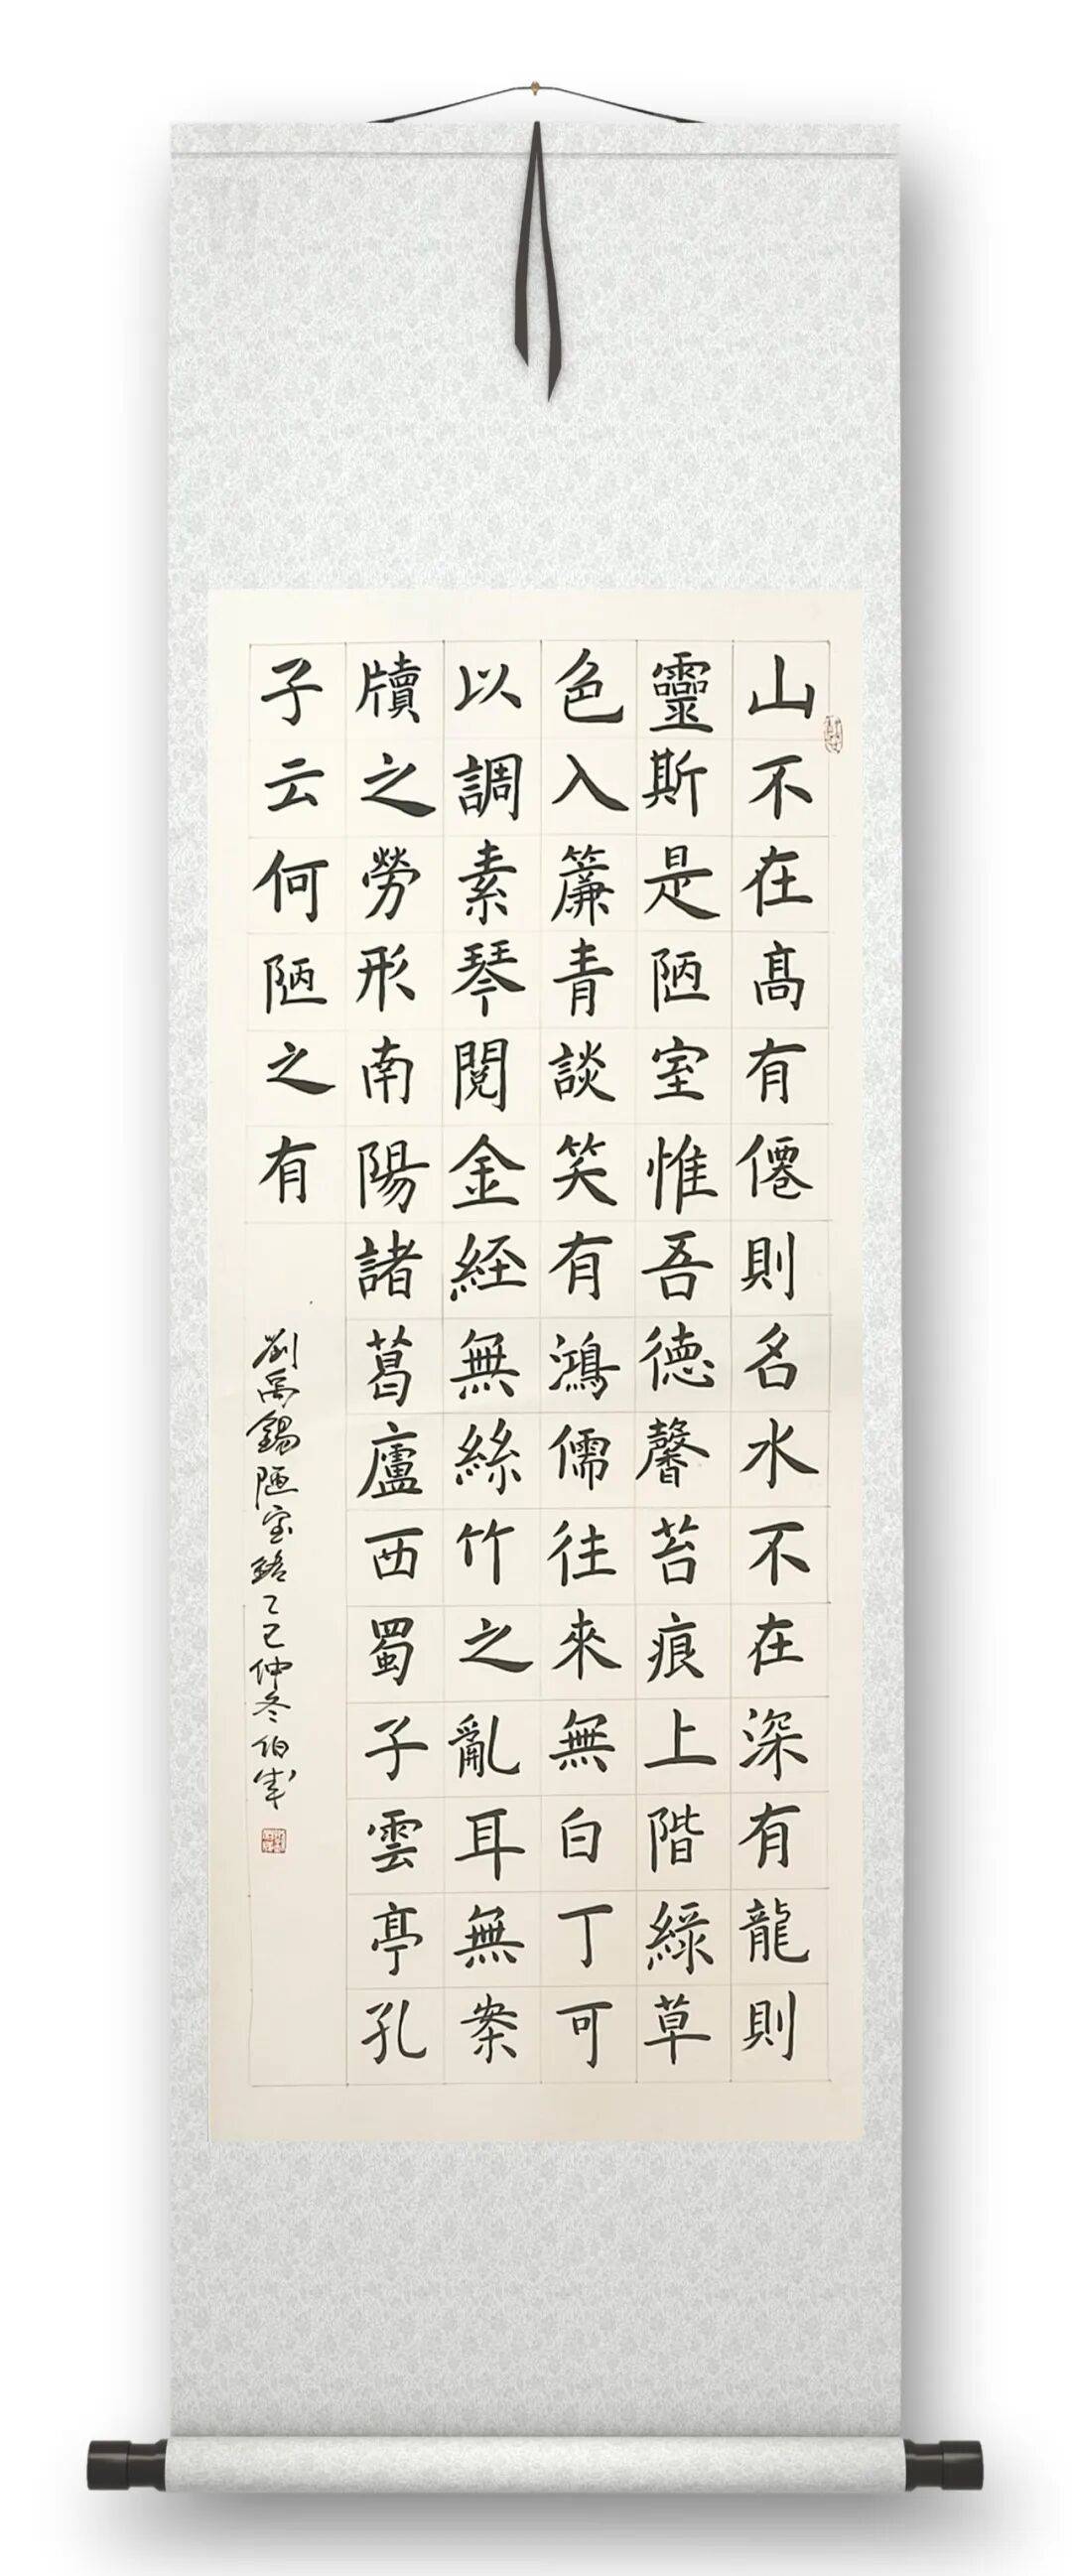 山不在髙有僊則名水不在深有龍則
靈斯是陋室惟吾徳馨苔痕上階綠草
色入簾青談笑有鴻儒往來無白丁可
以調素琴閱金経無絲竹之亂耳無案
牘之勞形南陽諸葛廬西蜀子雲亭孔
子云何陋之有
劉禹錫陋室銘乙巳仲冬伯成